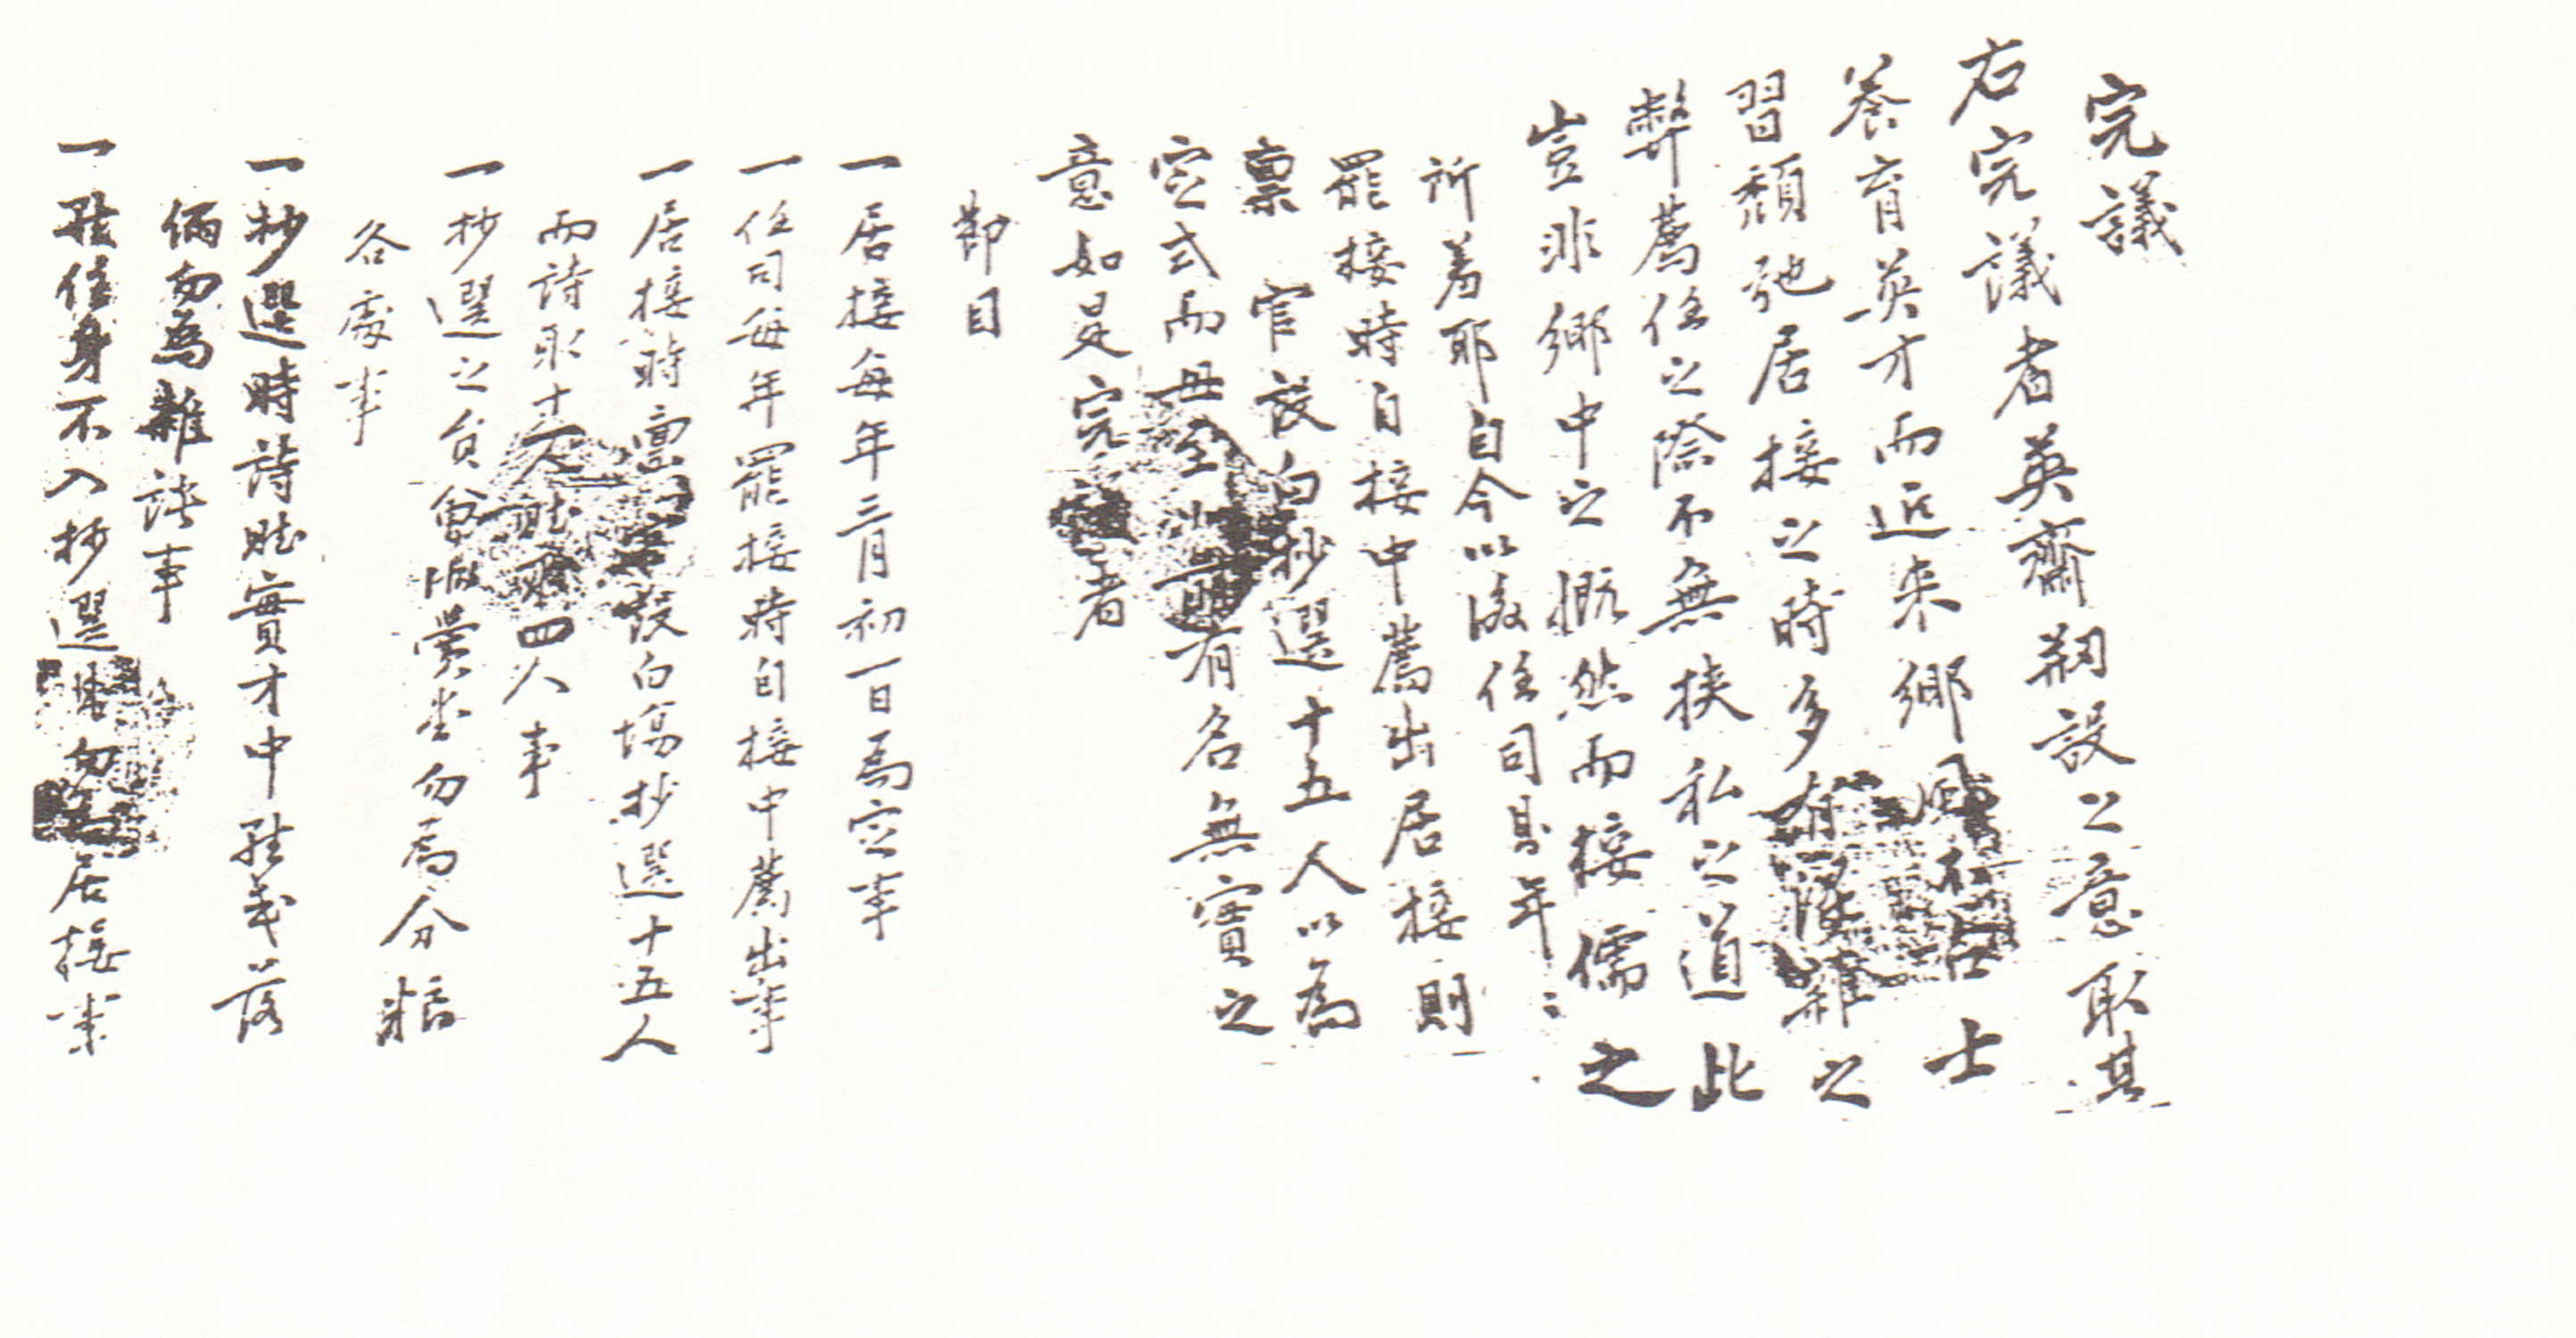 完議
右完議者英齋刱設之意取其
養育英才而近來鄉風不古士
習頹弛居接之時多有混雜之
弊薦任之際不無挾私之道此
豈非鄉中之慨然而接儒之
所羞耶自今以後任司則年〻
罷接時自接中薦出居接則
稟 官設白抄選十五人以為
定式而毋至 有名無實之
意如是完議者
節目
一居接每年三月初一日爲定事
一任司每年罷接時自接中薦出事
一居接時稟官設白場抄選十五人
而詩取十一人賦取四人事
一抄選之員會做黌堂勿爲分糧
各處事
一抄選時詩賦實才中雖或落
俩勿為雜談事
一雖任身不入抄選 勿 居接事